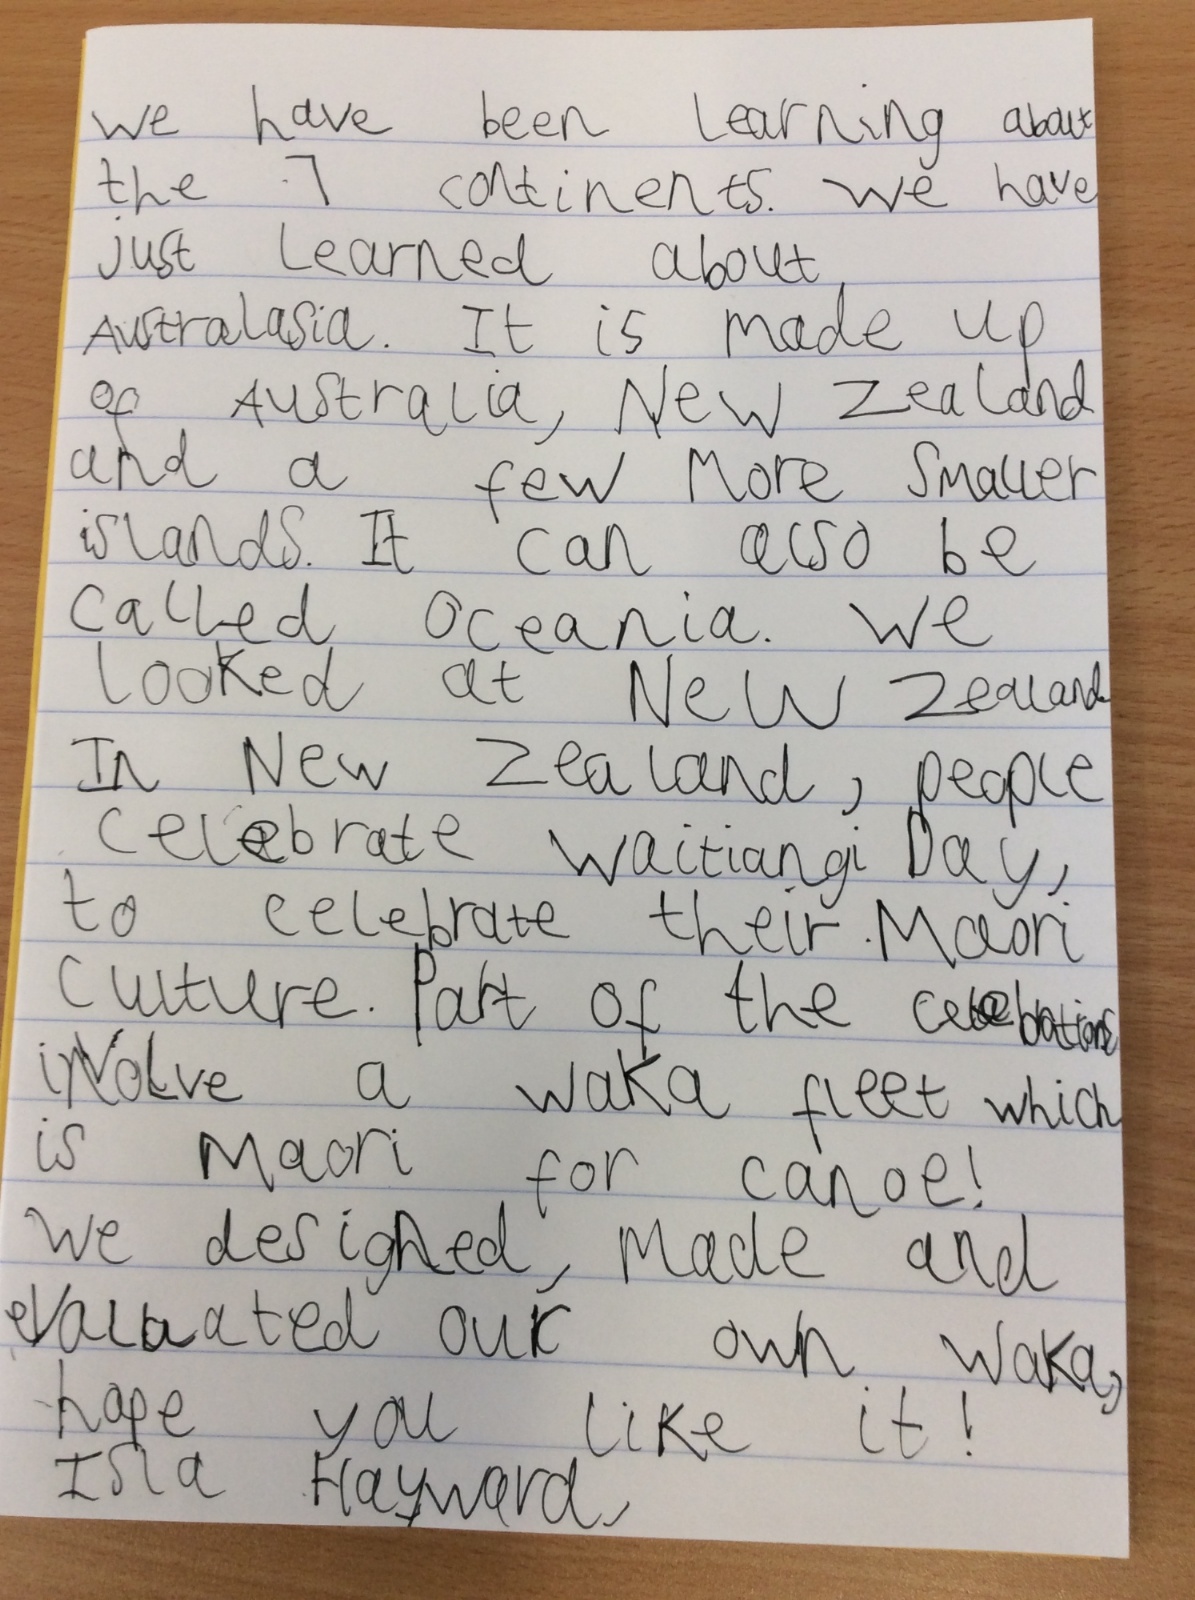 we have been learning about
the 7 continents. We have
just learned about
Australasia. It is made up
of Australia, New Zealand
and a few more smaller
islands. It can also be
called Oceania. We
looked at New Zealand
In New Zealand, people
celebrate Waitiangi Day,
to celebrate their Maori
culture. Part of the celebrations
involve a waka fleet which
is Maori for canoe!
We designed, made and
evaluated our own waka,
hope you like it!
Isla Hayward,